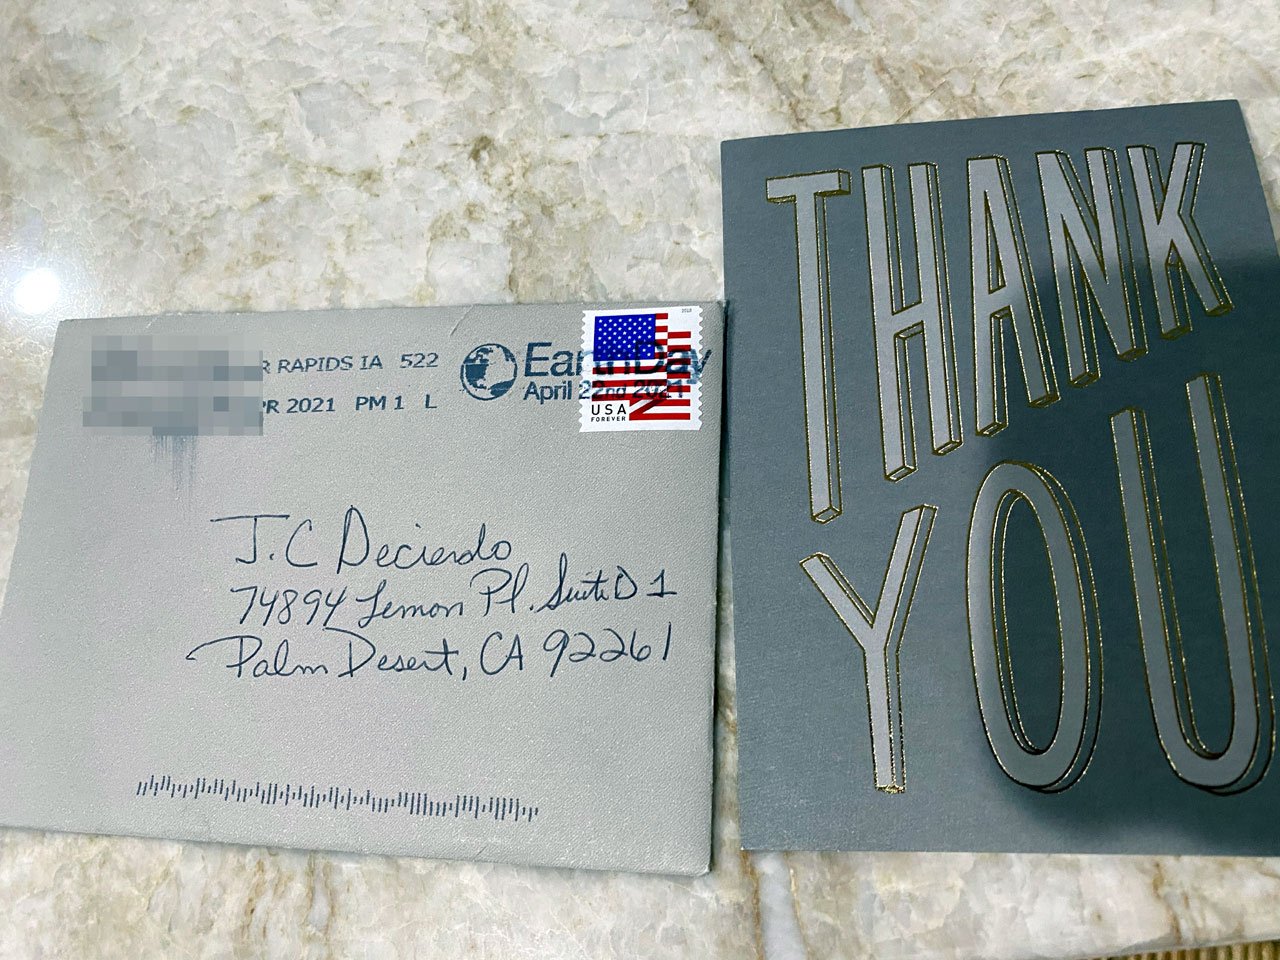 R RAPIDS IA 522
PR 2021 PM 1 L
Earth Day
April 22nd 2021
2018
USA
FOREVER
J.C Deciendo
74894 Lemon Pl. Suite D 1
Palm Desert, CA 92261
THANK
YOU